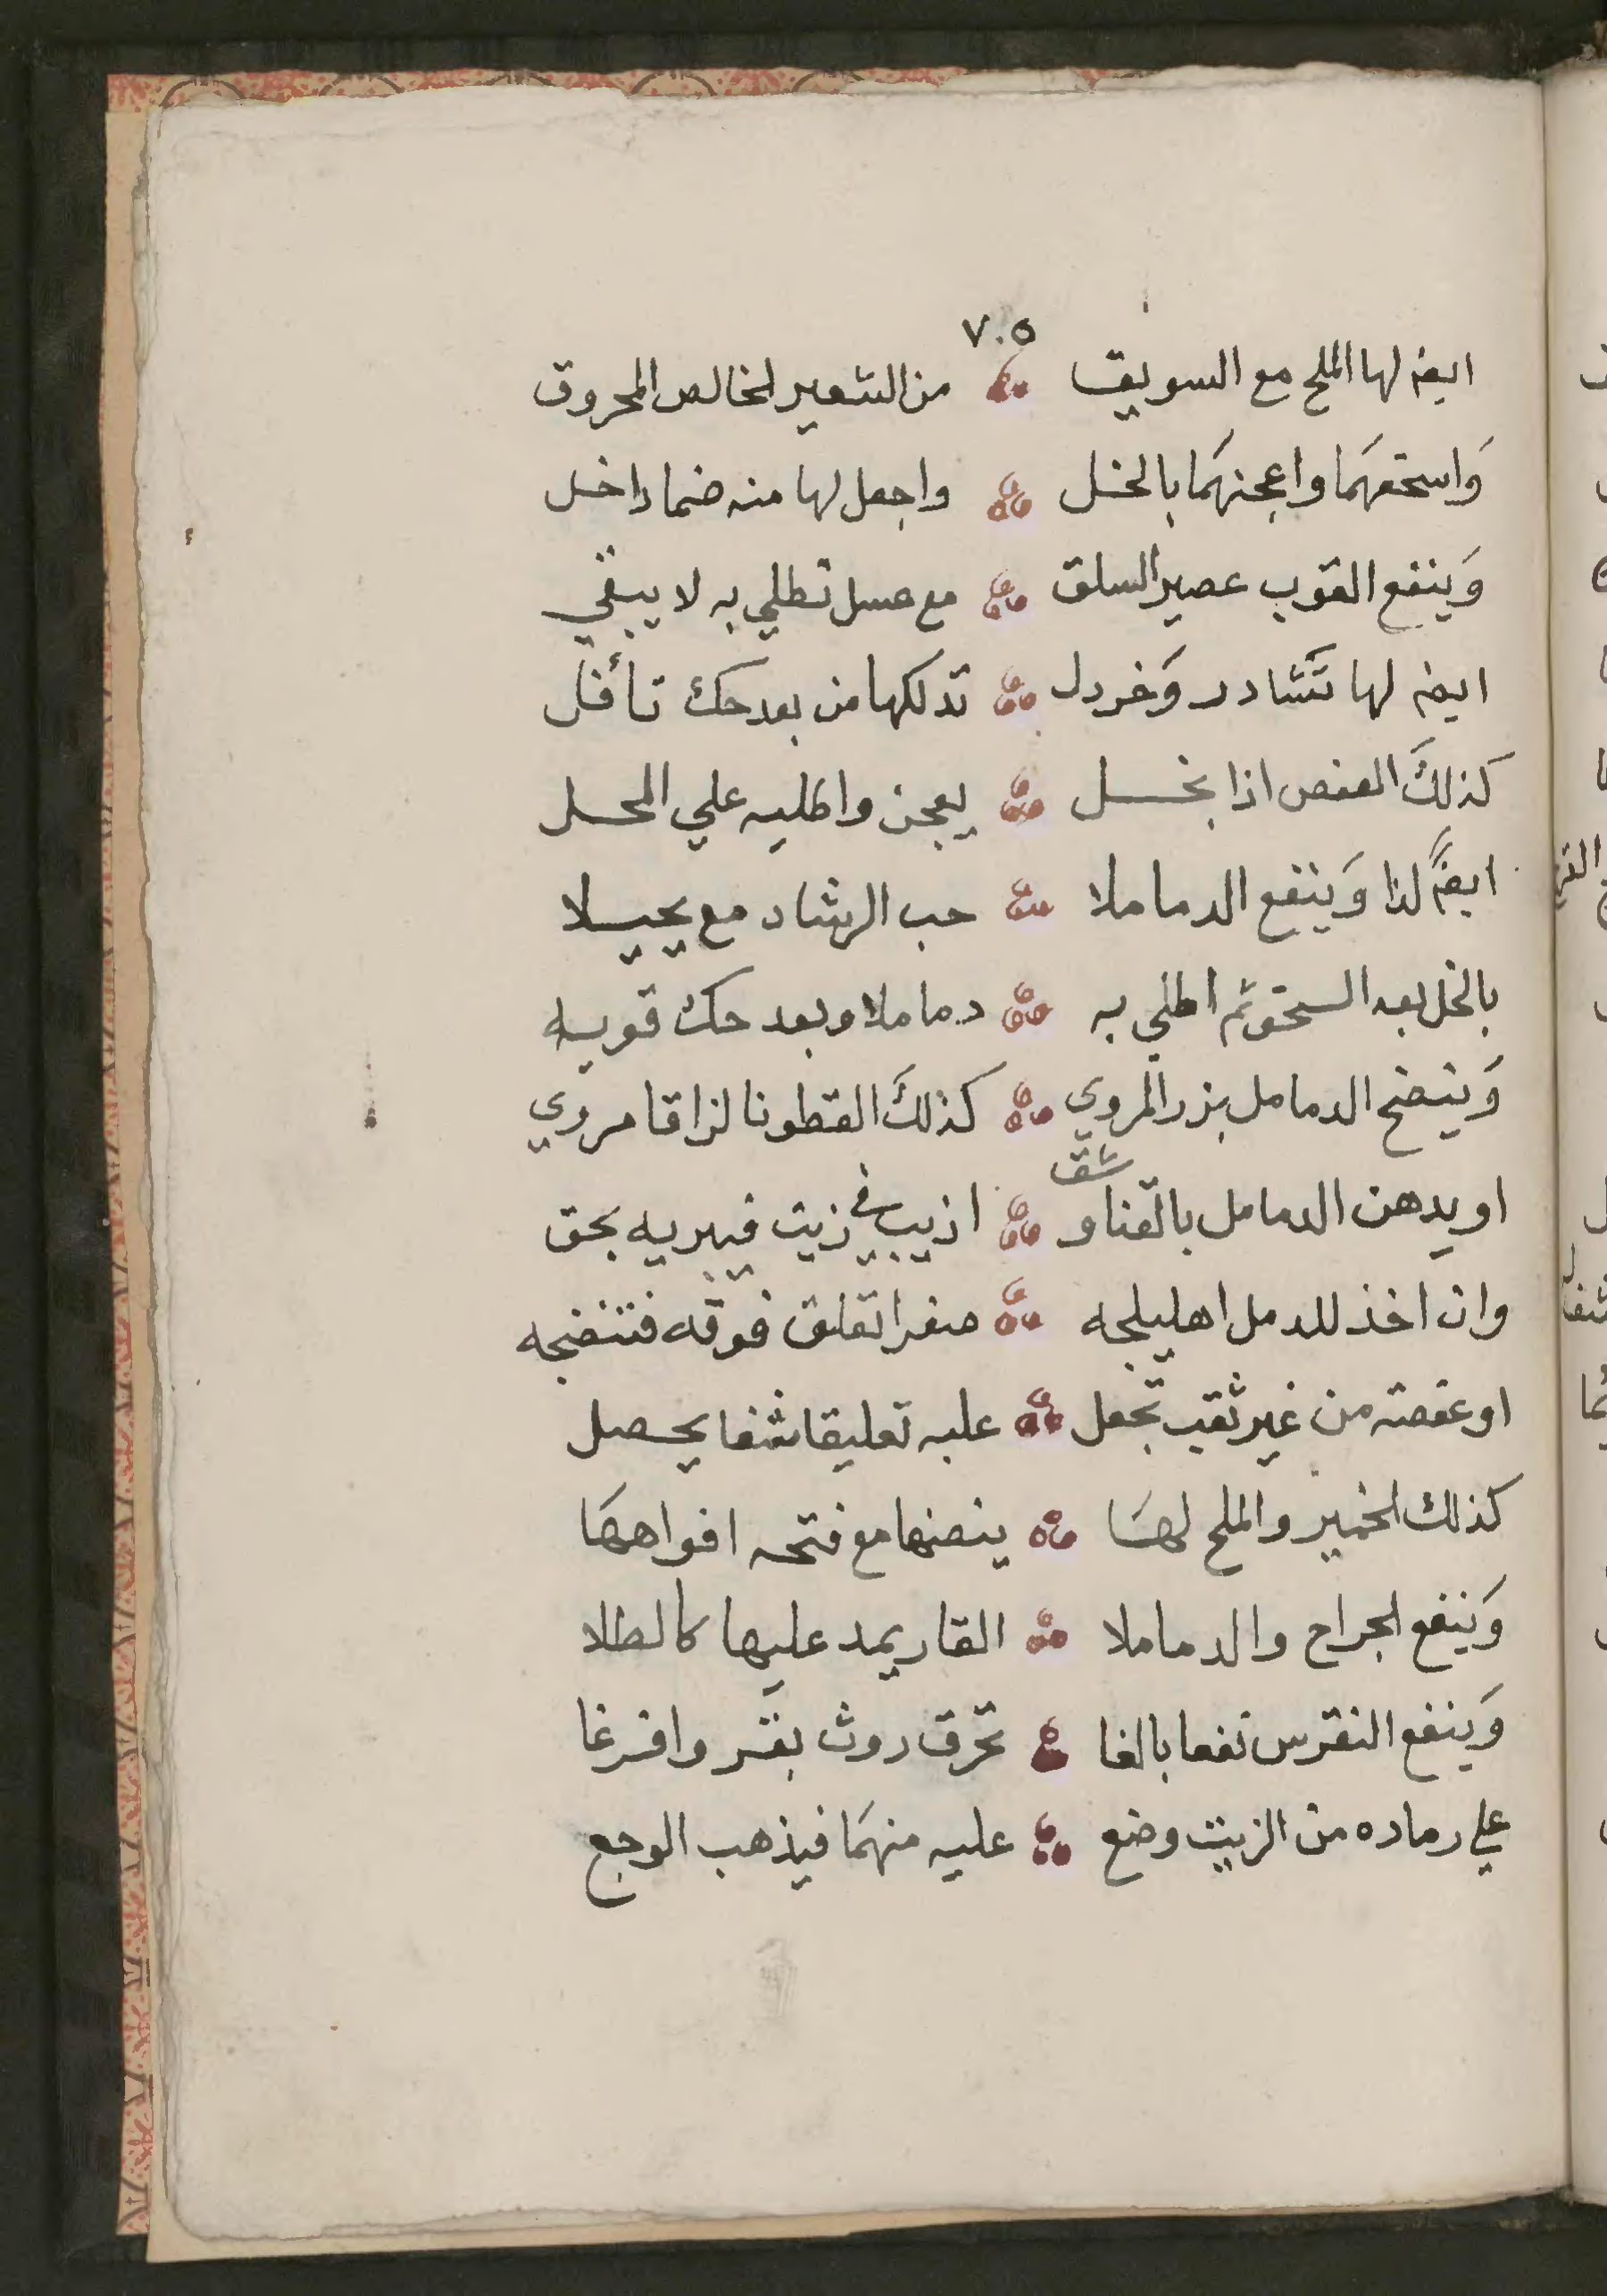 ٧٠٥
ايضا لها الملح مع السويق من الشعير الخالص المحروق
وَاسحقهَما واعجنهَما بالخل واجعل لها منه ضمادا خل
وَينفع القوب عصير السلق مع عسل تطلي به لا يبقي
ايضا لها نَشادر وَخردل تدلكها من بعد حك تأفل
كذلكَ العفص اذا بخل يعجن واطليه علي المحل
ايضًا لذا وَينفع الدماملا حب الرشاد مع
بالخل بعد السحق ثم اطلي به دماملا وبعد حك قوبه
وَينضج الدمامل بزر المروي كذلكَ القطونا لزاقا مروي
شق
او يدهن الدمامل بالقناو اذيب في زيت فيبريه بحق
وان اخذ للدمل اهليلجه صفرا تعلق فوقه فتنضجه
او عفصة من غير ثقب تجعل عليه تعليقا شفا يحصل
كذلك الخمير والملح لهَا ينضجها مع فتحه افواههَا
وَينفع الجراح والدماملا القار يمد عليها كالطلا
وَينفع النقرس نفعا بالغا تحرق روث بقر وافرغا
علي رماده من الزيت وضع عليه منهمَا فيذهب الوجع